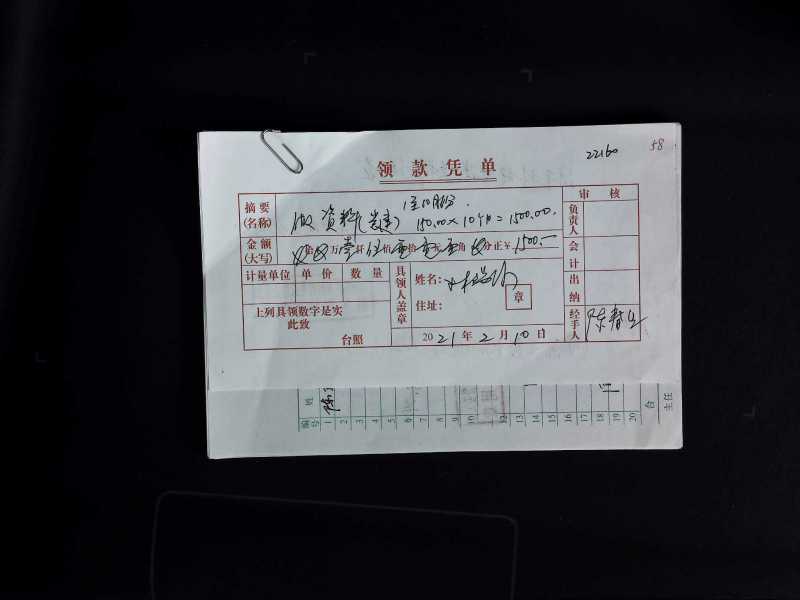 22160
58
领款凭单
1至10月份
摘要(名称) 做资料(党建) 150.00×10个月=1500.00.
审核
负责人
金额(大写) 拾 万壹仟伍佰零拾零元零角 分止¥1500.—
会计
计量单位 单价 数量
具领人盖章
姓名:
章
住址:
出纳
上列具领数字是实
此致
台照
2021年2月10日
经手人 陈春生
编号 姓
1 2 3 4 5 6 7 8 9 10 11 12 13 14 15 16 17 18 19 20
台
主任